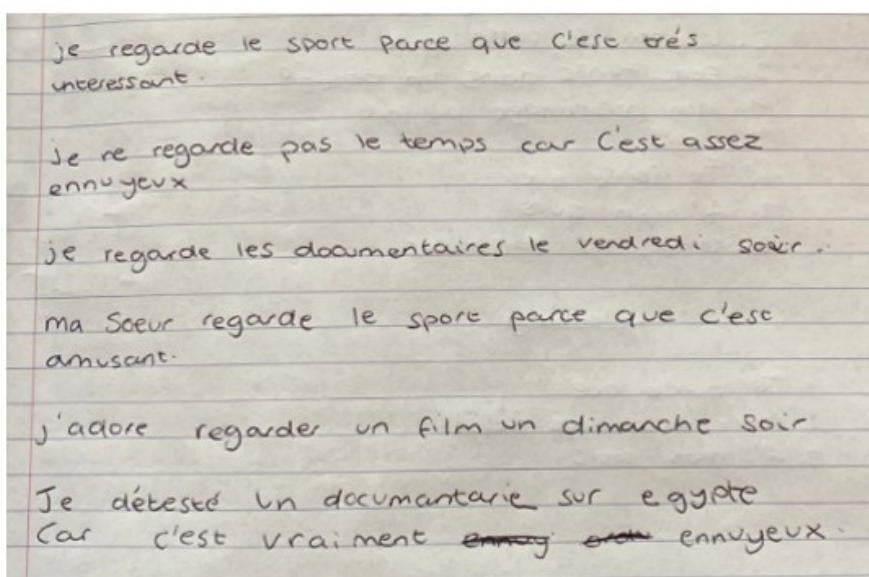 je regarde le sport parce que c'est trés
interessant.
je ne regarde pas le temps car C'est assez
ennuyeux
je regarde les documentaires le vendredi soir.
ma soeur regarde le sport parce que c'est
amusant.
j'adore regarder un film un dimanche soir
Je détesté un documantarie sur egypte
Car c'est vraiment ennuyeux.